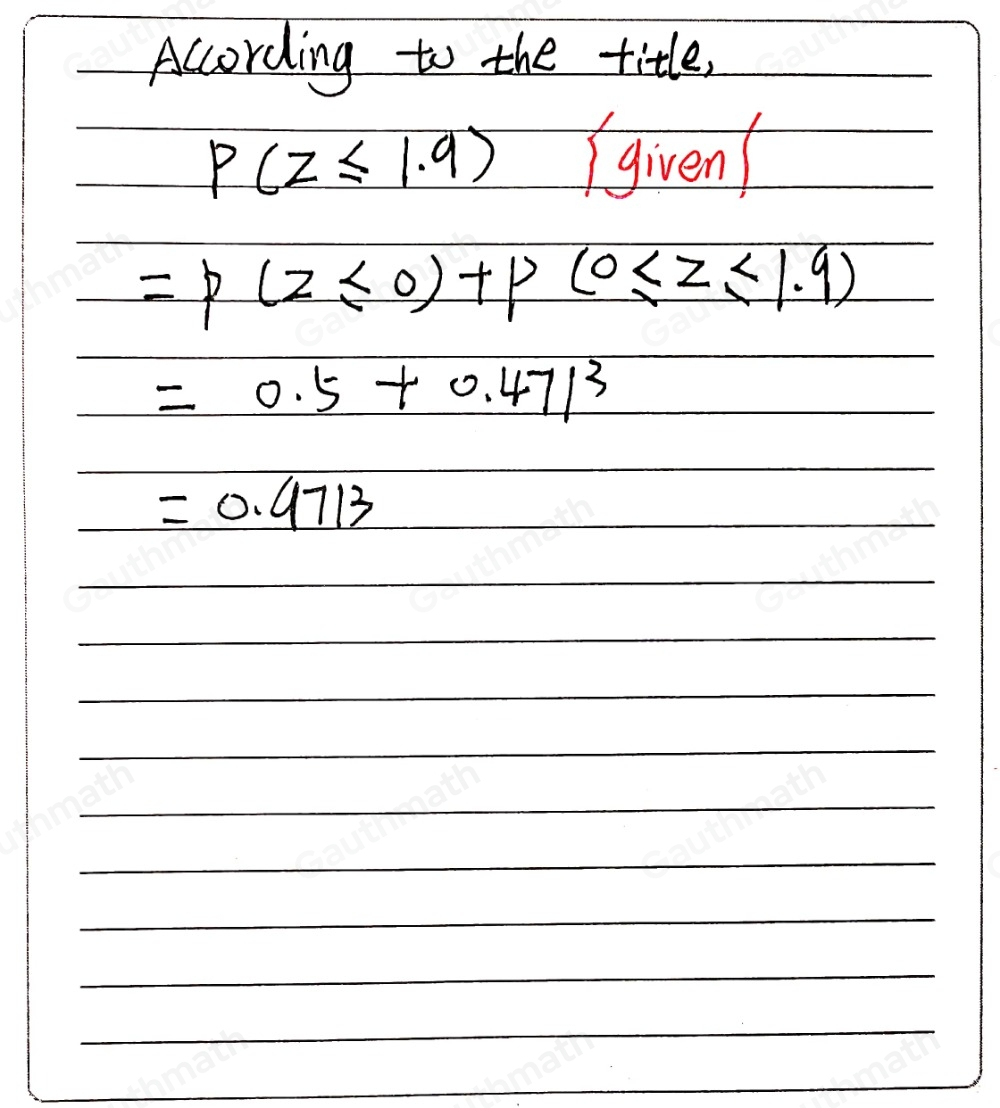 According to the title,
P(Z ≤ 1.9) {given}
= P (Z ≤ 0) + P (0 ≤ Z ≤ 1.9)
= 0.5 + 0.4713
= 0.9713
Gauthmath